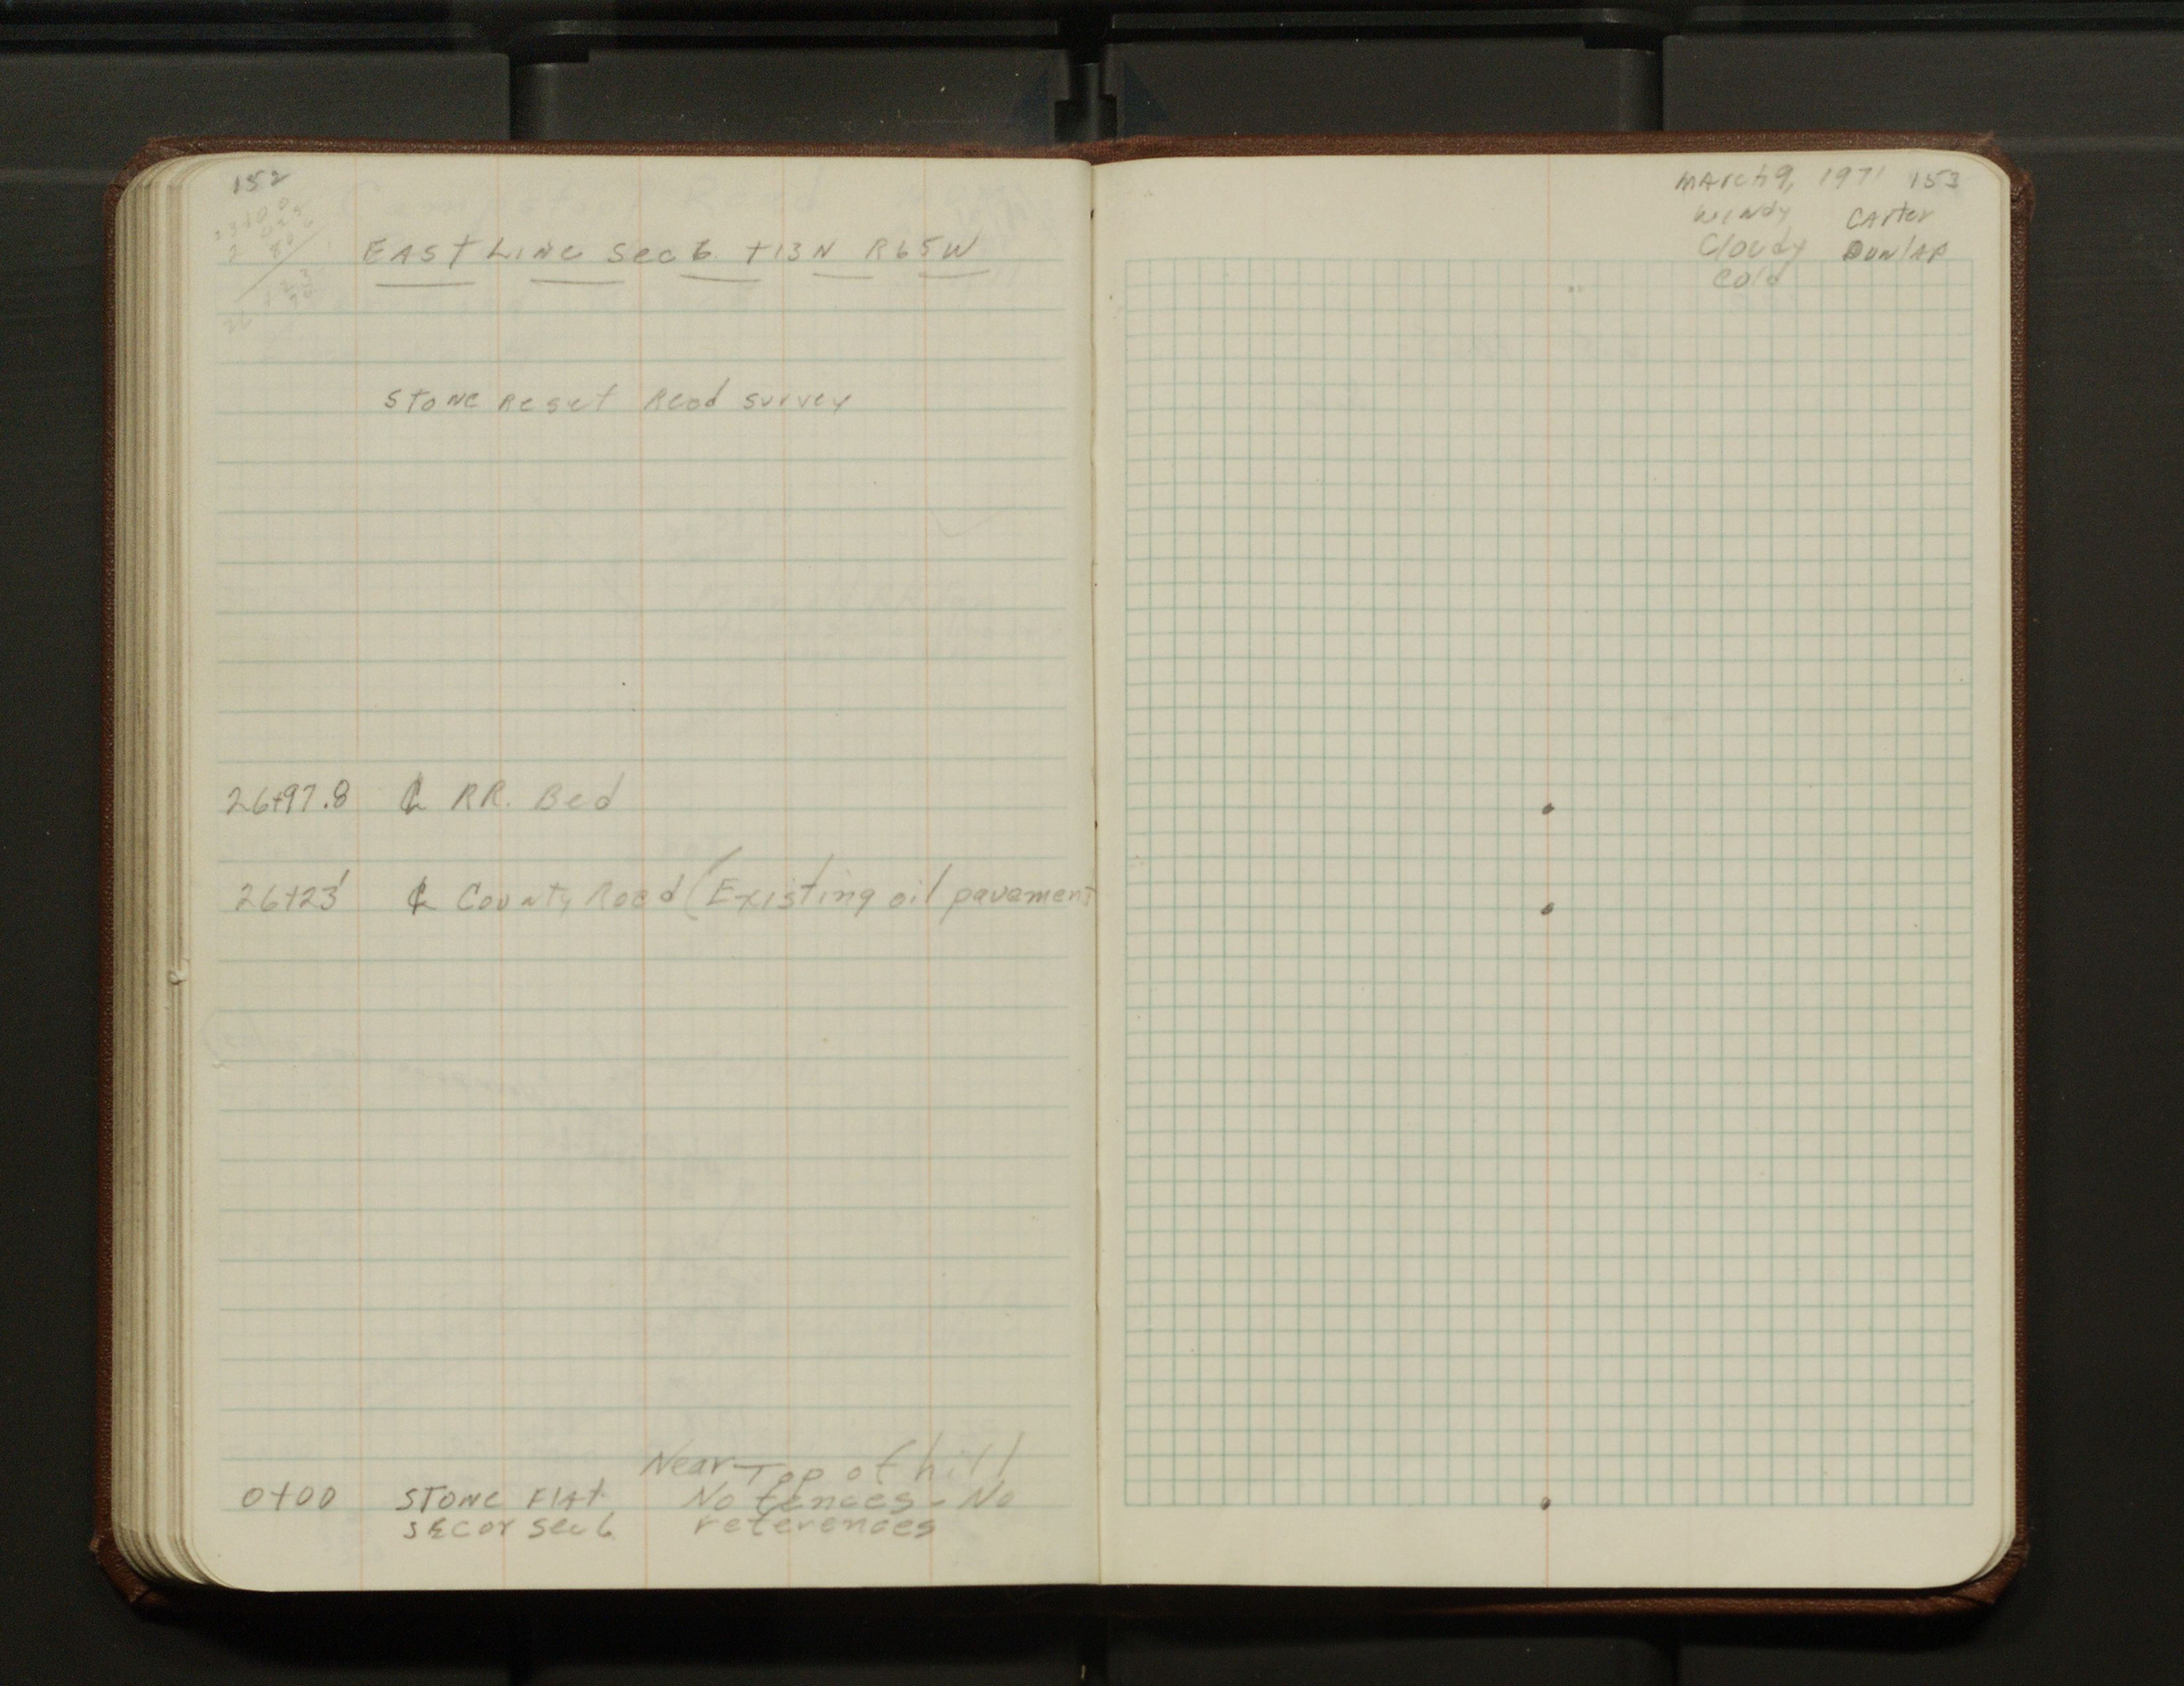 152
EAST LINE Sec 6 T13N R65W
STONE Reset Read survey
26+97.8 ℄ RR. Bed
26+23' ℄ County Road (Existing oil pavement
Near Top of hill
0+00 STONE FLAT No fences - No
SECor Sec 6 references
March 9, 1971 153
Windy Carter
Cloudy Dunlap
Cold